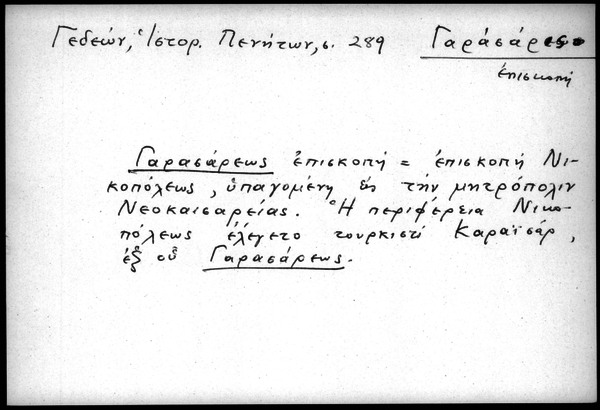 Γεδεών, Ἱστορ. Πενήτων, σ. 289 Γαράσάρεως
ἐπισκοπή
Γαρασάρεως ἐπισκοπή = ἐπισκοπή Νι-
κοπόλεως, ὑπαγομένη εἰς τήν μητρόπολιν
Νεοκαισαρείας. Ἡ περιφέρεια Νικο-
πόλεως ἐλέγετο τουρκιστί Καραϊσάρ,
ἐξ οὗ Γαρασάρεως.